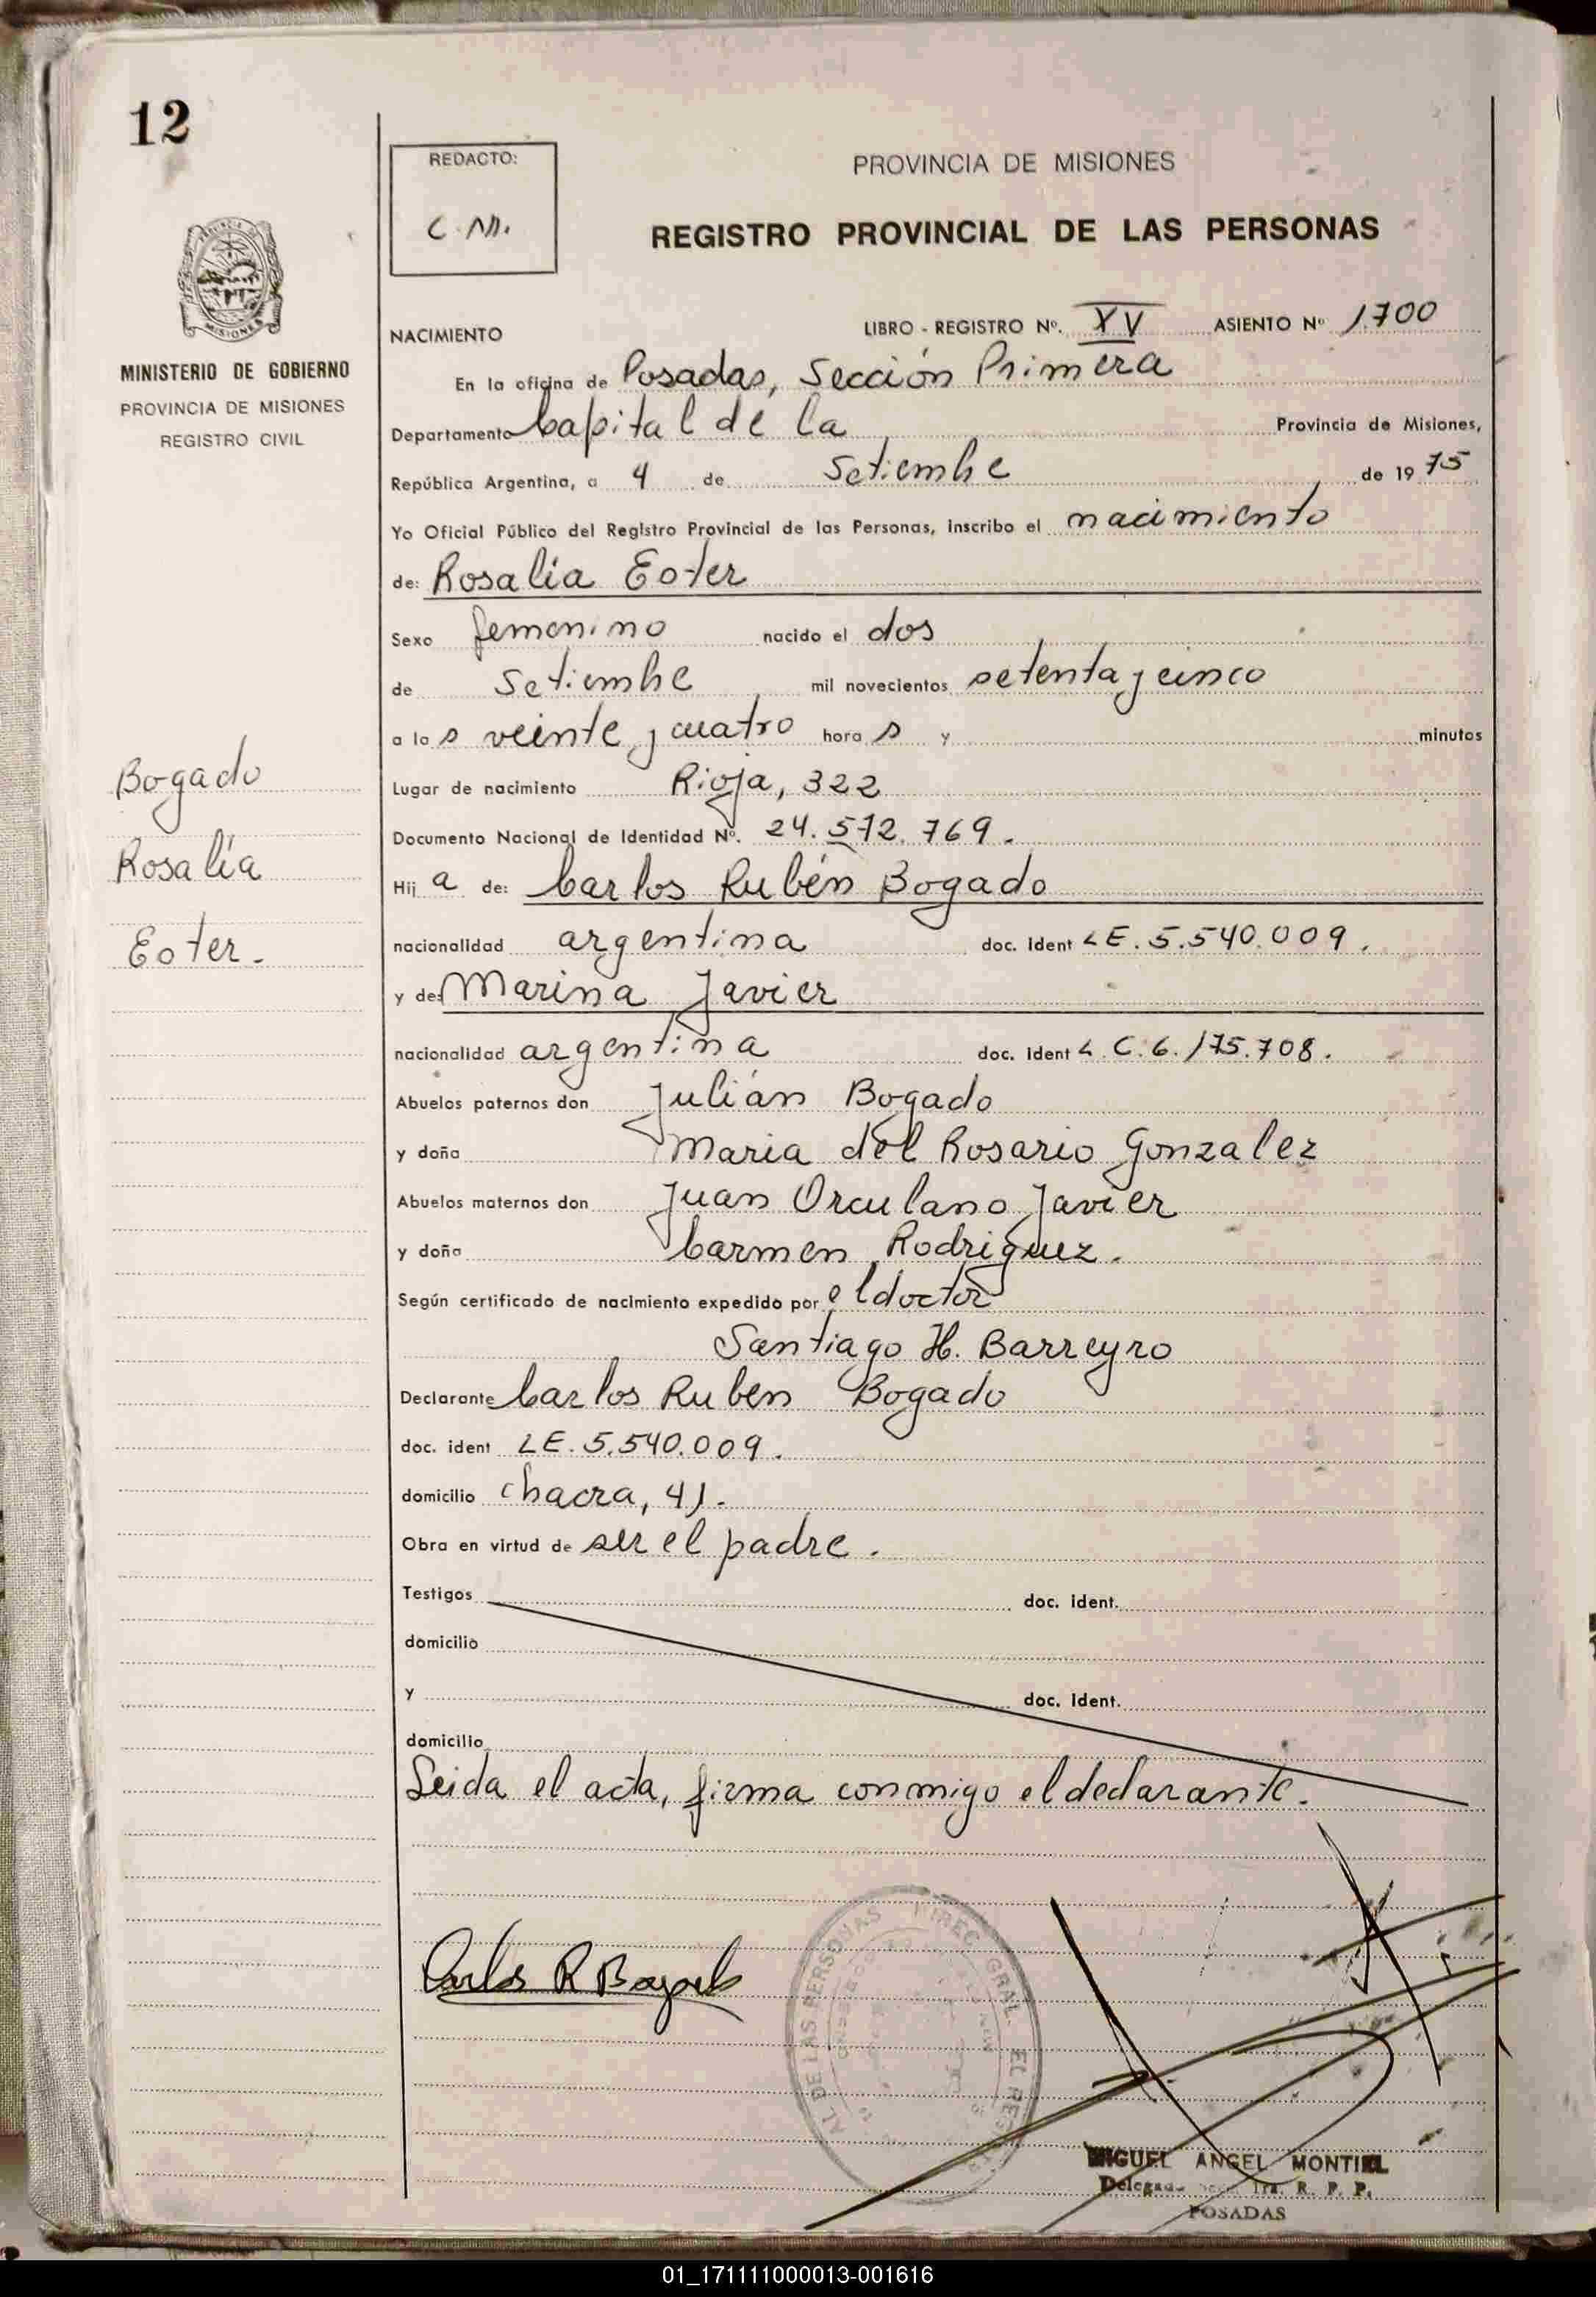 12
REDACTO:
C.M.
PROVINCIA DE MISIONES
REGISTRO PROVINCIAL DE LAS PERSONAS
MINISTERIO DE GOBIERNO
PROVINCIA DE MISIONES
REGISTRO CIVIL
NACIMIENTO LIBRO - REGISTRO Nº. XV ASIENTO Nº 1.700
En la oficina de Posadas, Sección Primera
Departamento Capital de la Provincia de Misiones,
República Argentina, a 4 de Setiembre de 1975
Yo Oficial Público del Registro Provincial de las Personas, inscribo el nacimiento
de: Rosalía Ester
Sexo femenino nacido el dos
de Setiembre mil novecientos setenta y cinco
a las veinte y cuatro horas y minutos
Lugar de nacimiento Rioja, 322
Documento Nacional de Identidad Nº. 24.572.769.
Hija de: Carlos Rubén Bogado
nacionalidad argentina doc. ident LE. 5.540.009.
y de: Marina Javier
nacionalidad argentina doc. ident L.C. 6.175.708.
Abuelos paternos don Julián Bogado
y doña Maria del Rosario Gonzalez
Abuelos maternos don Juan Orculano Javier
y doña Carmen Rodriguez.
Según certificado de nacimiento expedido por el doctor
Santiago H. Barreyro
Declarante Carlos Ruben Bogado
doc. ident LE. 5.540.009.
domicilio Chacra, 41.
Obra en virtud de ser el padre.
Testigos doc. ident.
domicilio
y doc. ident.
domicilio
Leida el acta, firma conmigo el declarante.
Bogado
Rosalía
Ester.
Carlos R Bogado
MIGUEL ANGEL MONTIEL
R. P. P.
POSADAS
01_171111000013-001616